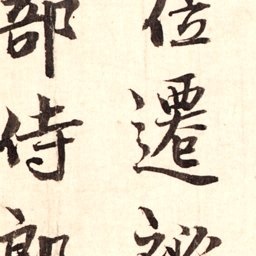 位遷祕
部侍郎